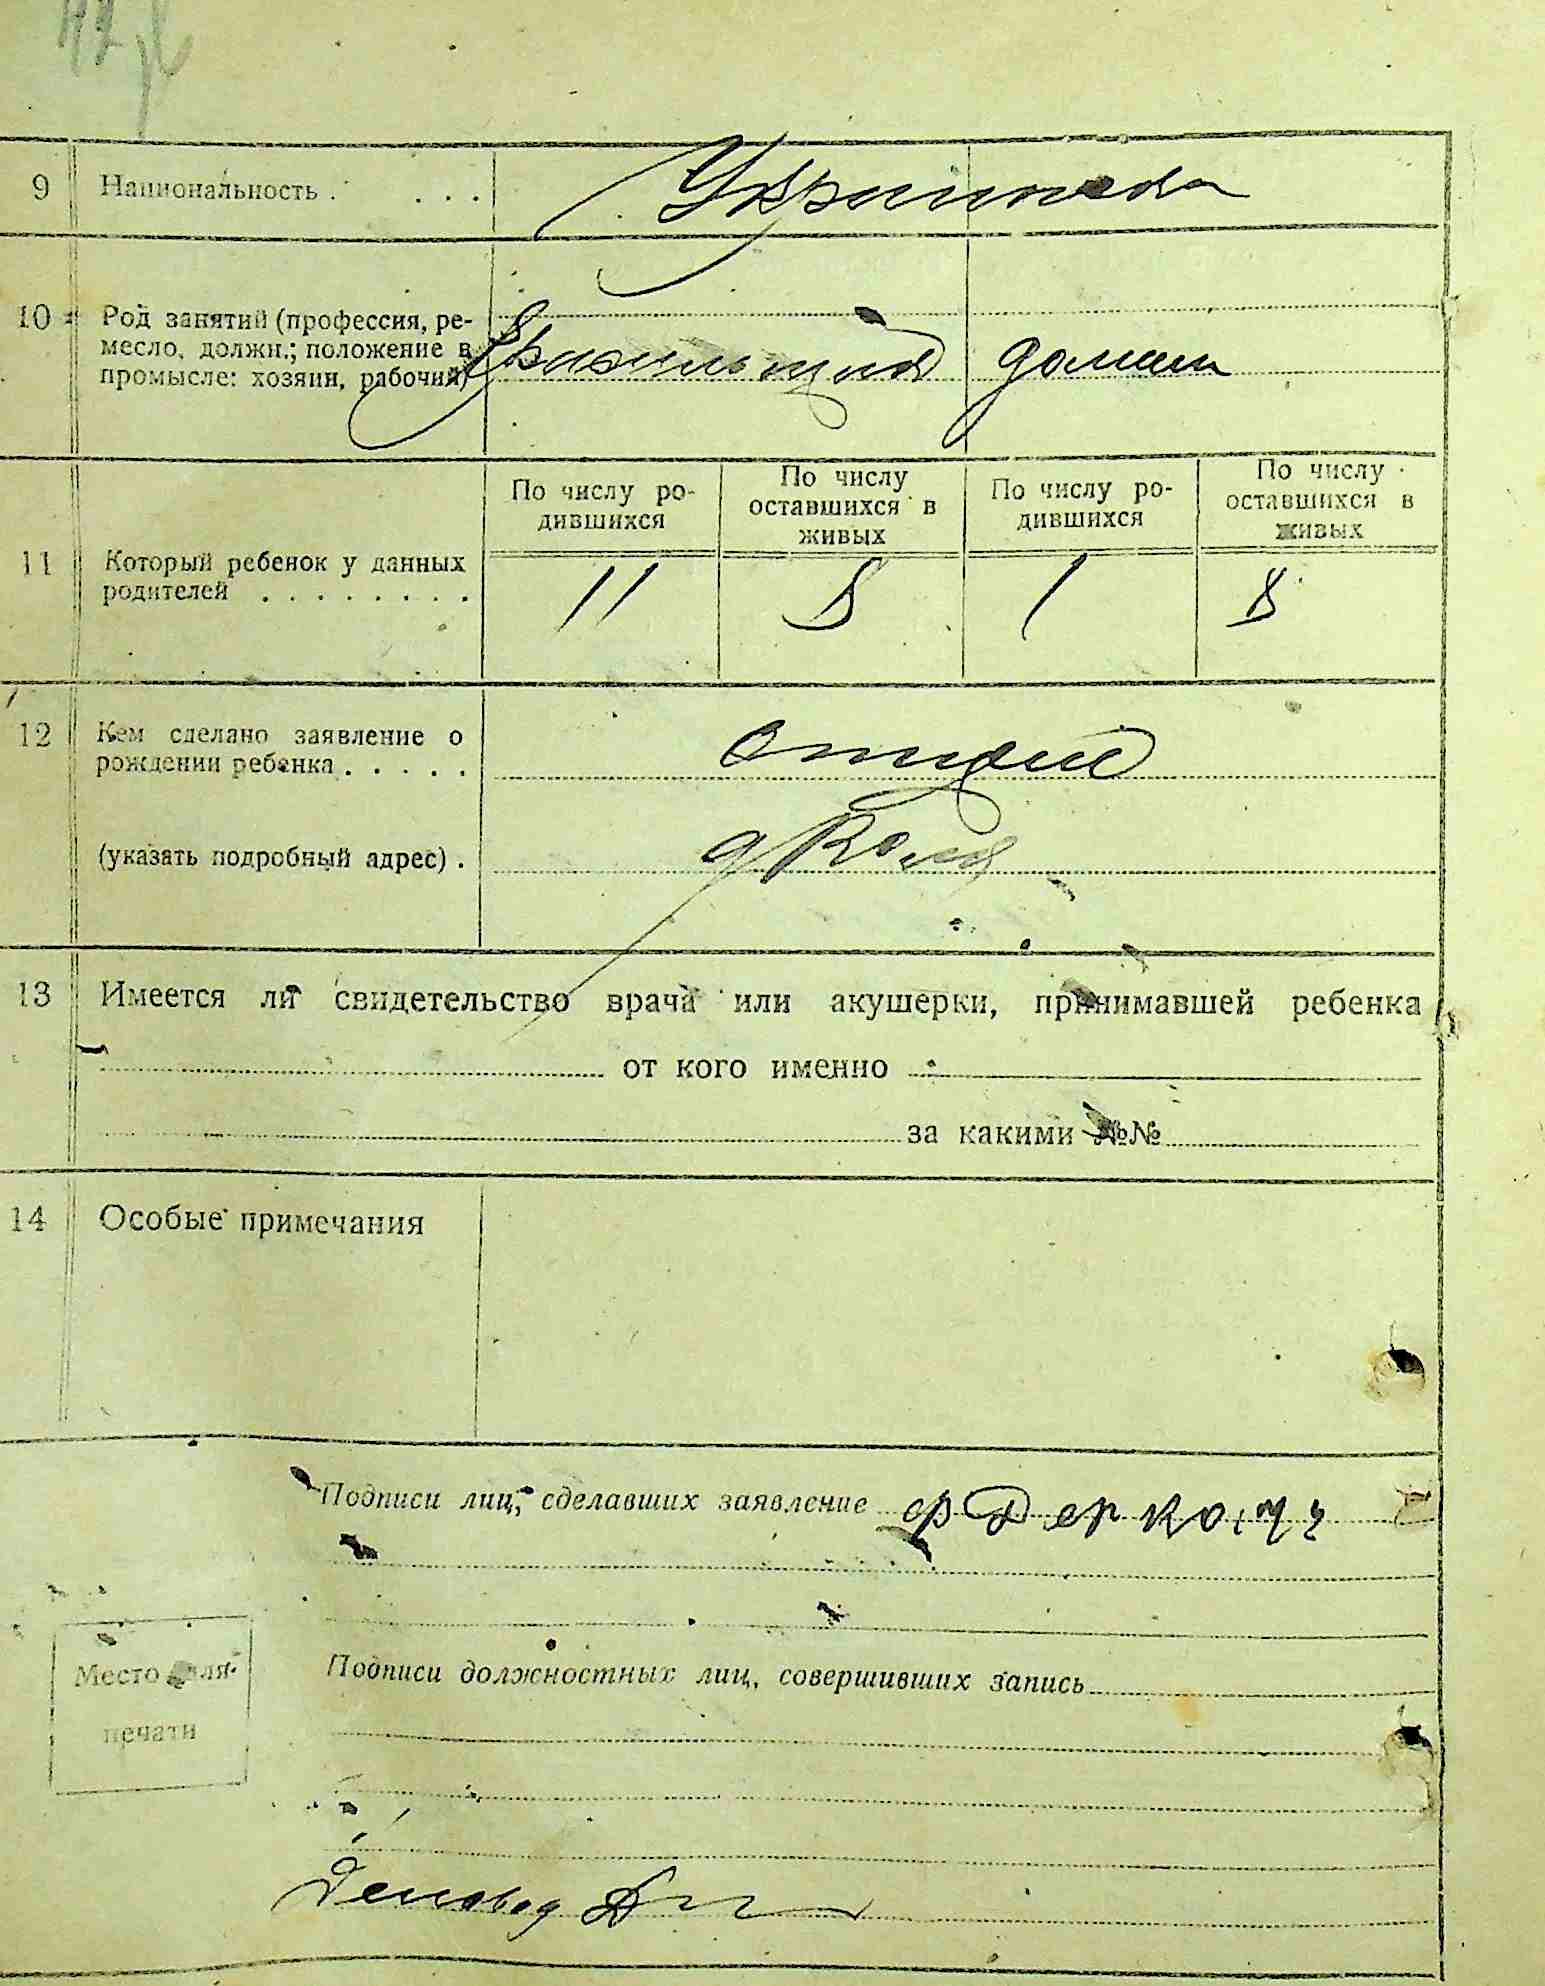 9 Национальность . . . . Украинсков
10 Род занятий (профессия, ре-
месло, должн.; положение в
промысле: хозяин, рабочий)
домаш
По числу ро-
дившихся
По числу
оставшихся в
живых
По числу ро-
дившихся
По числу
оставшихся в
живых
11 Который ребенок у данных
родителей . . . . . . . .
11 1
12 Кем сделано заявление о
рождении ребенка . . . . .
отцом
(указать подробный адрес) .
13 Имеется ли свидетельство врача или акушерки, принимавшей ребенка
от кого именно
за какими №№
14 Особые примечания
Подписи лиц, сделавших заявление
Место для
печати
Подписи должностных лиц, совершивших запись
Деловод